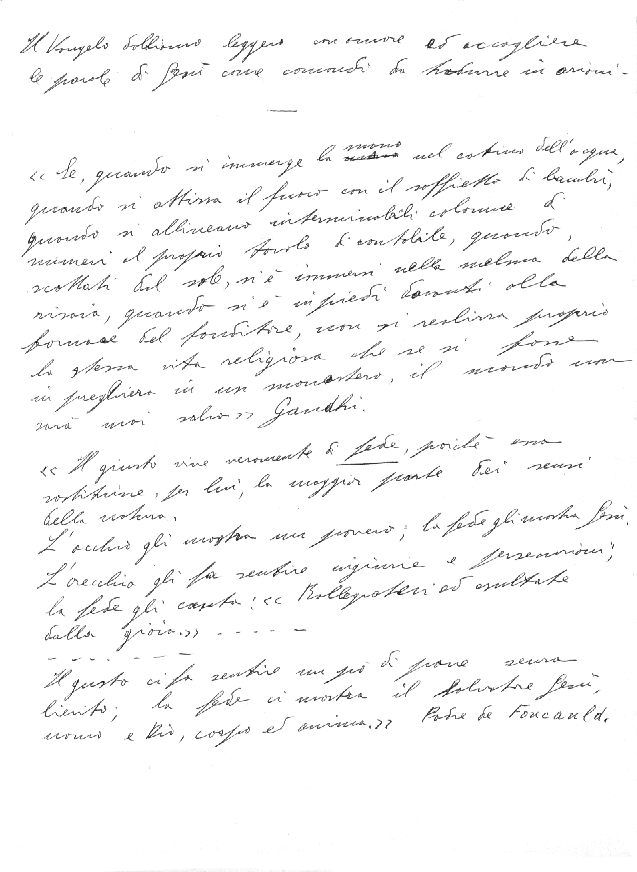 Il Vangelo dobbiamo leggere con amore ed accogliere
le parole di Gesù come comandi da tradurre in azioni.
—
<< Se, quando si immerge la mano nel catino dell'acqua,
quando si attizza il fuoco con il soffietto di bambù,
quando si allineano interminabili colonne di
numeri al proprio tavolo di contabile, quando,
scottati dal sole, si è immersi nella melma della
risaia, quando si è in piedi davanti alla
fornace del fonditore, non si realizza proprio
la stessa vita religiosa che se si fosse
in preghiera in un monastero, il mondo non
sarà mai salvo >> Gandhi.
<< Il giusto vive veramente di fede, poiché essa
sostituisce, per lui, la maggior parte dei sensi
della natura.
L'occhio gli mostra un povero; la fede gli mostra Gesù.
L'orecchio gli fa sentire ingiurie e persecuzioni;
la fede gli canta: << Rallegratevi ed esultate
dalla gioia. >> - - - - -
- - - - - - - -
Il gusto ci fa sentire un po' di pane senza
lievito; la fede ci mostra il Salvatore Gesù,
uomo e Dio, corpo ed anima. >> Padre de Foucauld.